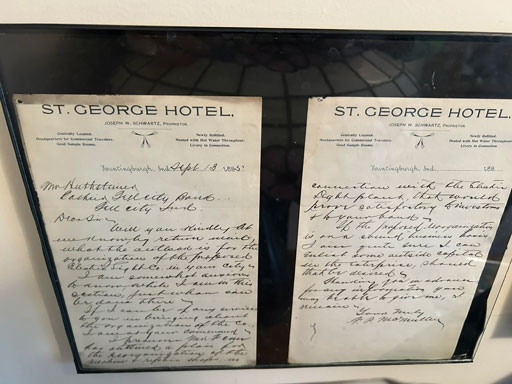 ST. GEORGE HOTEL.
JOSEPH W. SCHWARTZ, PROPRIETOR.
Centrally Located.
Headquarters for Commercial Travelers.
Good Sample Rooms.
Newly Refitted.
Heated with Hot Water Throughout.
Livery in Connection.
Huntingburgh, Ind. Sept 13 1895
Mr
Cashier Tell City Bank
Tell City Ind.
Dear Sir
Will you kindly let
me know by return mail
what the outlook is for the
organization of the proposed
Electric Light Co. in your City
I am somewhat anxious
to know while I am in this
section, just what can
be done there
If I can be of any service
to you in bringing about
the organization of the Co.
I am at your command
I presume Mr
has outlined a plan for
the reorganization of the
machine & repair shops in
ST. GEORGE HOTEL.
JOSEPH W. SCHWARTZ, PROPRIETOR.
Centrally Located.
Headquarters for Commercial Travelers.
Good Sample Rooms.
Newly Refitted.
Heated with Hot Water Throughout.
Livery in Connection.
Huntingburgh, Ind. 189
connection with the Electric
Light plant, that would
prove satisfactory to investors
& to your bank
If the proposed reorganization
is on a sound business basis
I am quite sure I can
enlist some outside capital
in the enterprise, should
that be desired
Thanking you in advance
for any information you
may be able to give me, I
remain
Yours Truly
McMiller